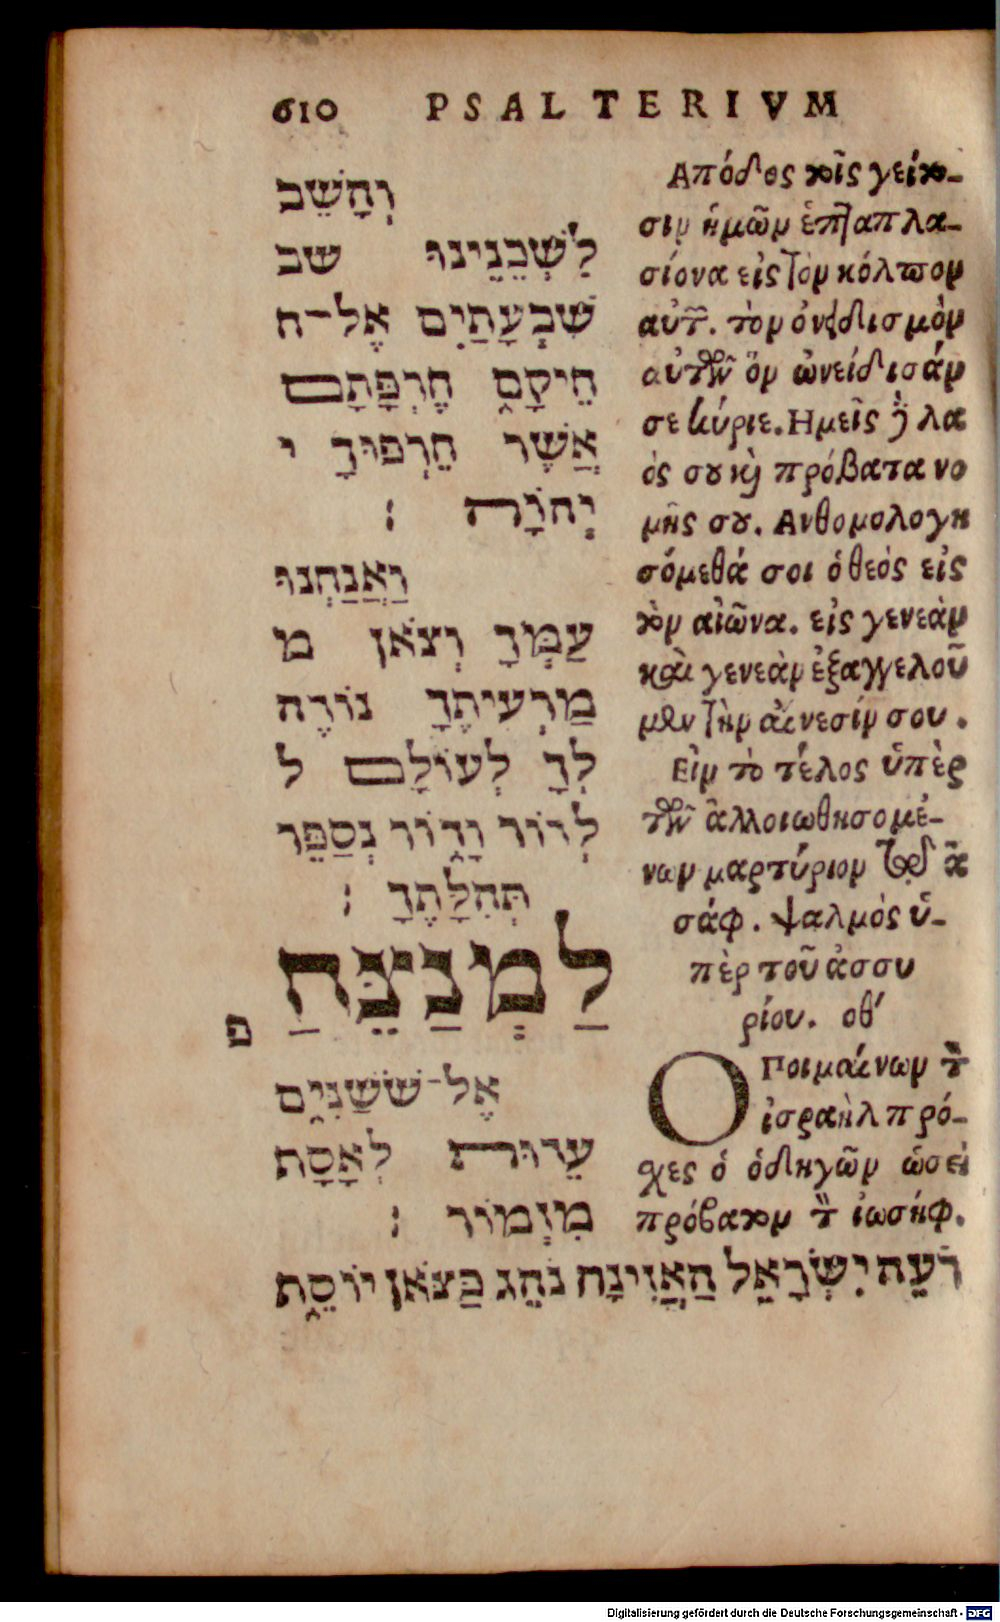 610 PSALTERIVM
וְהָשֵׁב
לִשְׁכֵנֵינוּ שב
שִׁבְעָתַיִם אֶל־ח
חֵיקָם חֶרְפָּתָם
אֲשֶׁר חֵרְפוּךָ י
יְהוָֹה :
וַאֲנַחְנוּ
עַמְּךָ וְצֹאן מ
מַרְעִיתֶךָ נוֹדֶה
לְךָ לְעוֹלָם ל
לְדוֹר וָדוֹר נְסַפֵּר
תְּהִלָּתֶךָ :
לַמְנַצֵּחַ
פ
אֶל־שֹׁשַׁנִּים
עֵדוּת לְאָסָף
מִזְמוֹר :
Απόδος τοῖς γείτο-
σιν ἡμῶν ἑπταπλα-
σίονα εἰς τὸν κόλπον
αὐτῶν. τὸν ὀνειδισμὸν
αὐτῶν ὃν ὠνείδισάν
σε κύριε. Ημεῖς δὲ λα
ὸς σου καὶ πρόβατα νο
μῆς σου. Ανθομολογη
σόμεθά σοι ὁ θεός εἰς
τὸν αἰῶνα. εἰς γενεὰν
καὶ γενεὰν ἐξαγγελοῦ
μεν τὴν αἴνεσίν σου.
Εἰς τὸ τέλος ὑπὲρ
τῶν ἀλλοιωθησομέ-
νων μαρτύριον τῷ ἀ
σάφ. ψαλμός ὑ-
πὲρ τοῦ ἀσσυ
ρίου. οθ΄
Ο Ποιμαίνων τὸν
ἰσραὴλ πρό-
χες ὁ ὁδηγῶν ὡσεὶ
πρόβατον τὸν ἰωσήφ.
רֹעֵה יִשְׂרָאֵל הַאֲזִינָה נֹהֵג כַּצֹּאן יוֹסֵף
Digitalisierung gefördert durch die Deutsche Forschungsgemeinschaft - DFG